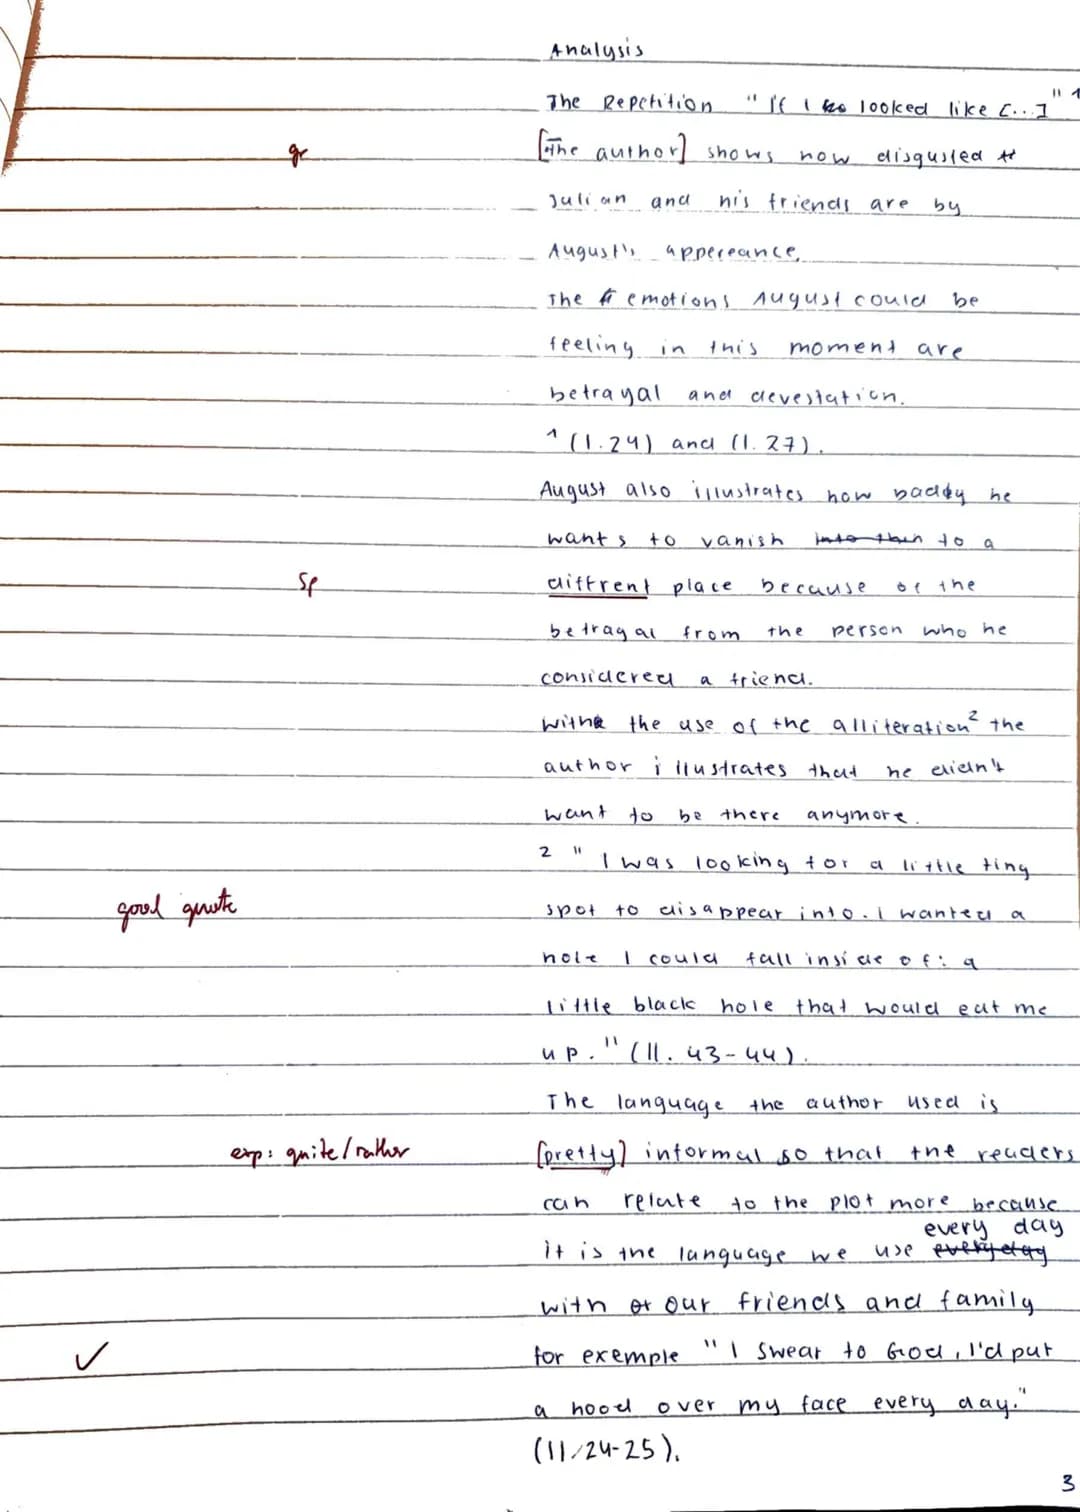 Analysis
The Repetition "If I looked like [...]" 1
gr [The author] shows how disgusted
Julian and his friends are by
August's appereance.
The emotions August could be
feeling in this moment are
betrayal and devestation.
1 (l.24) and (l.27).
August also illustrates how badly he
wants to vanish into then to a
sp diffrent place because of the
betrayal from the person who he
considered a friend.
with the use of the alliteration2 the
author illustrates that he didn't
want to be there anymore.
2 "I was looking for a little ting
good quote spot to disappear into. I wanted a
hole I could fall inside of: a
little black hole that would eat me
up." (ll. 43-44).
The language the author used is
exp: quite/rather [pretty] informal so that the readers
can relate to the plot more because
every day
it is the language we use everyday
with our friends and family
✓ for exemple "I swear to God, I'd put
a hood over my face every day."
(ll 24-25).
3